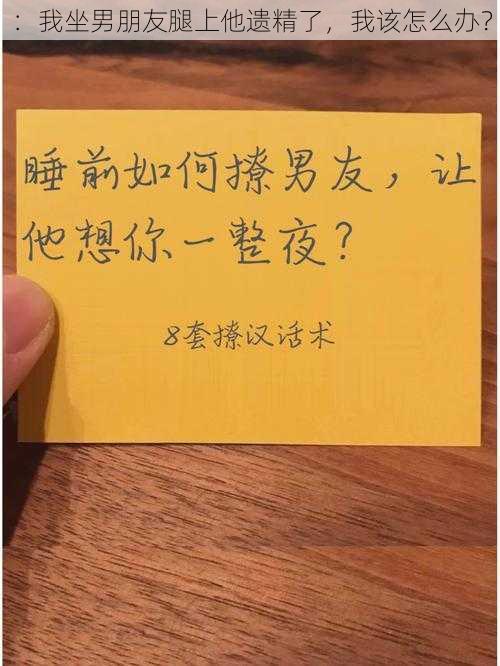 ：我坐男朋友腿上他遗精了，我该怎么办？
睡前如何撩男友，让
他想你一整夜？
8套撩汉话术